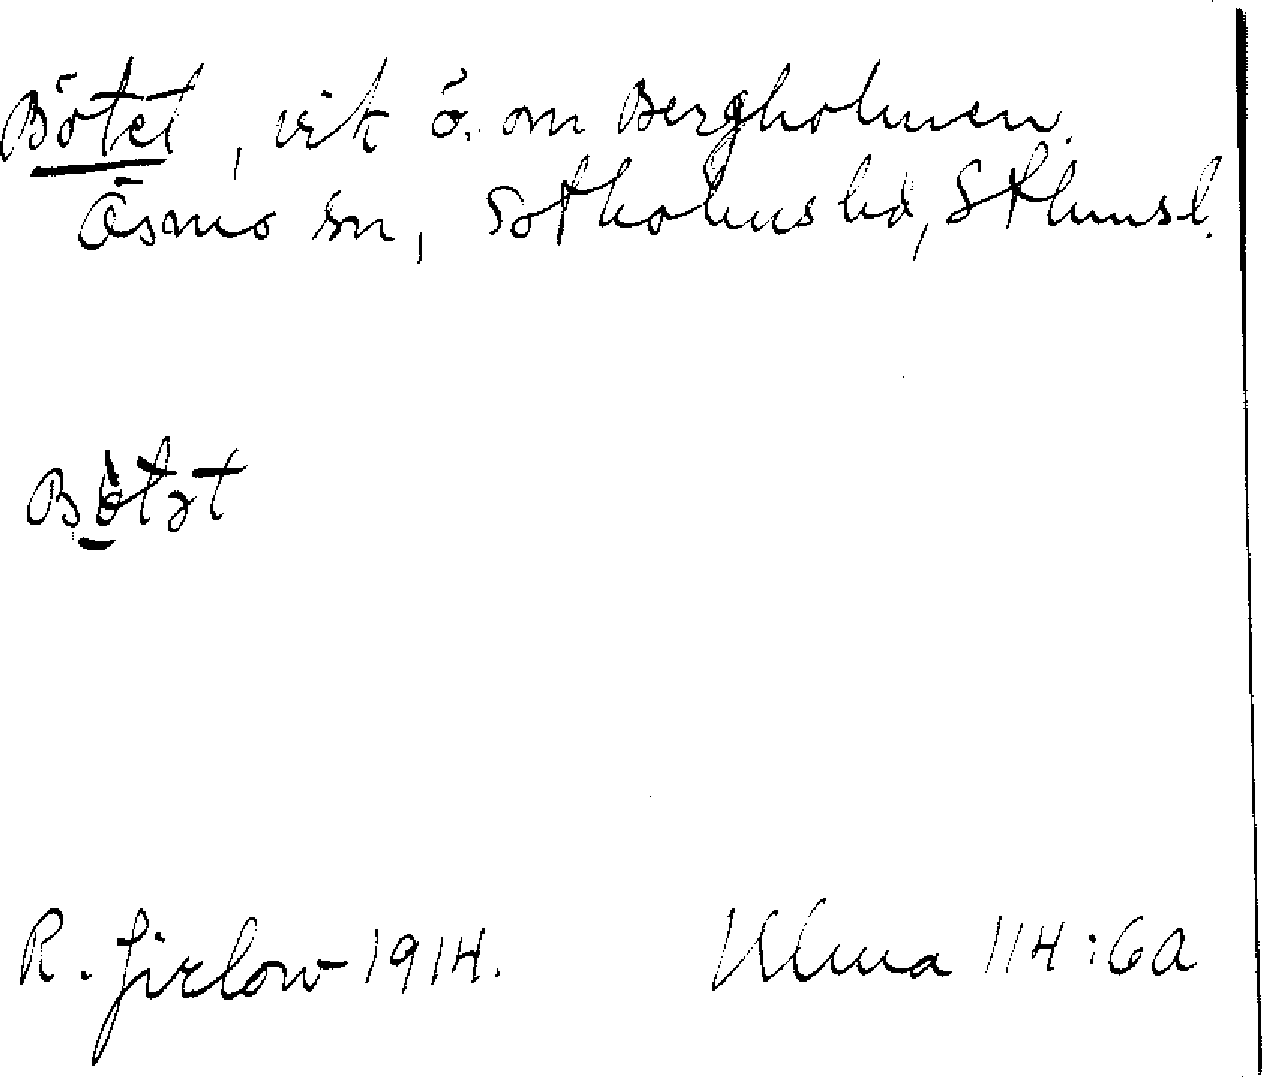 Bötet, vik ö. om Bergholmen.
Ösmo sn, Sotholms hd, Sthmsl.
Bötət
R. Jirlow 1914. Ulma 114:6a